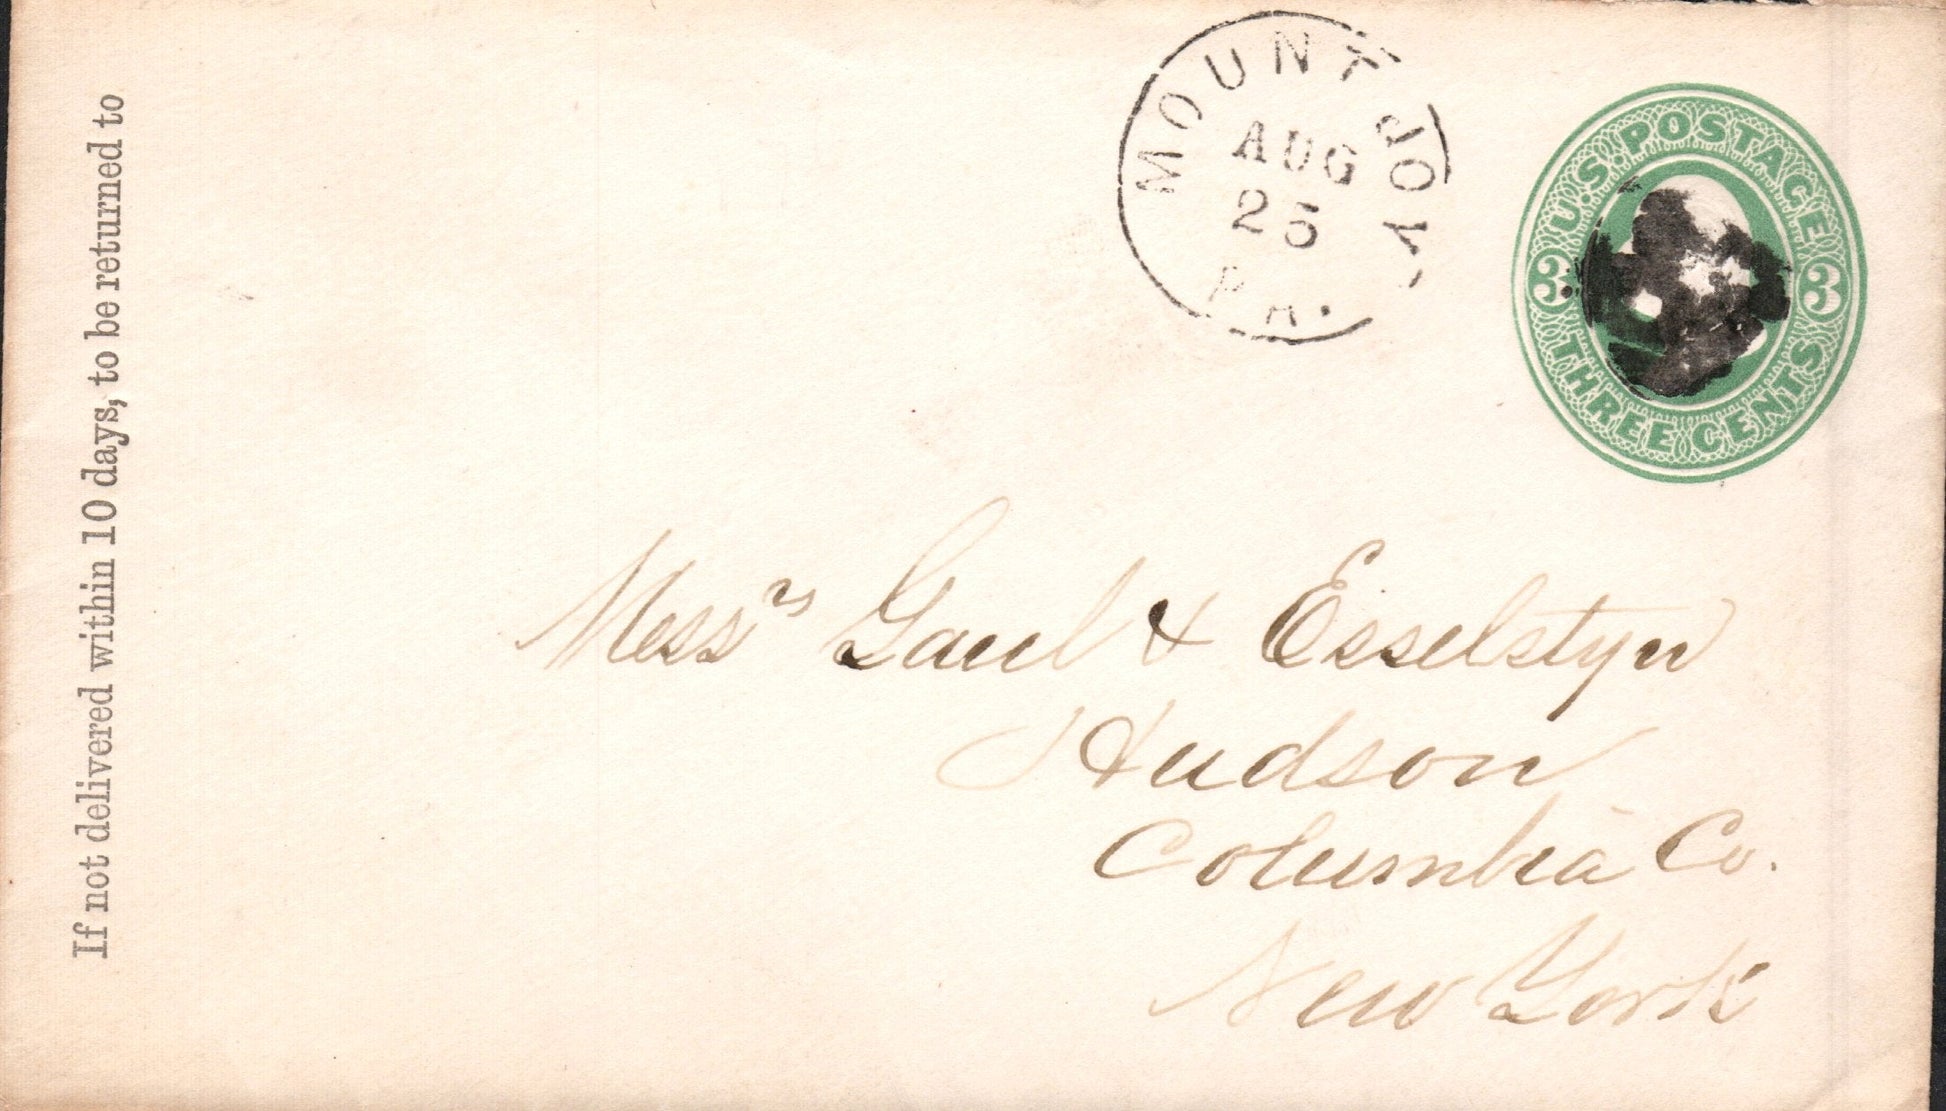 If not delivered within 10 days, to be returned to
MOUNT JOY
AUG
25
PA.
U.S. POSTAGE
3 3
THREE CENTS
Messrs Gaul & Esselstyn
Hudson
Columbia Co.
New York